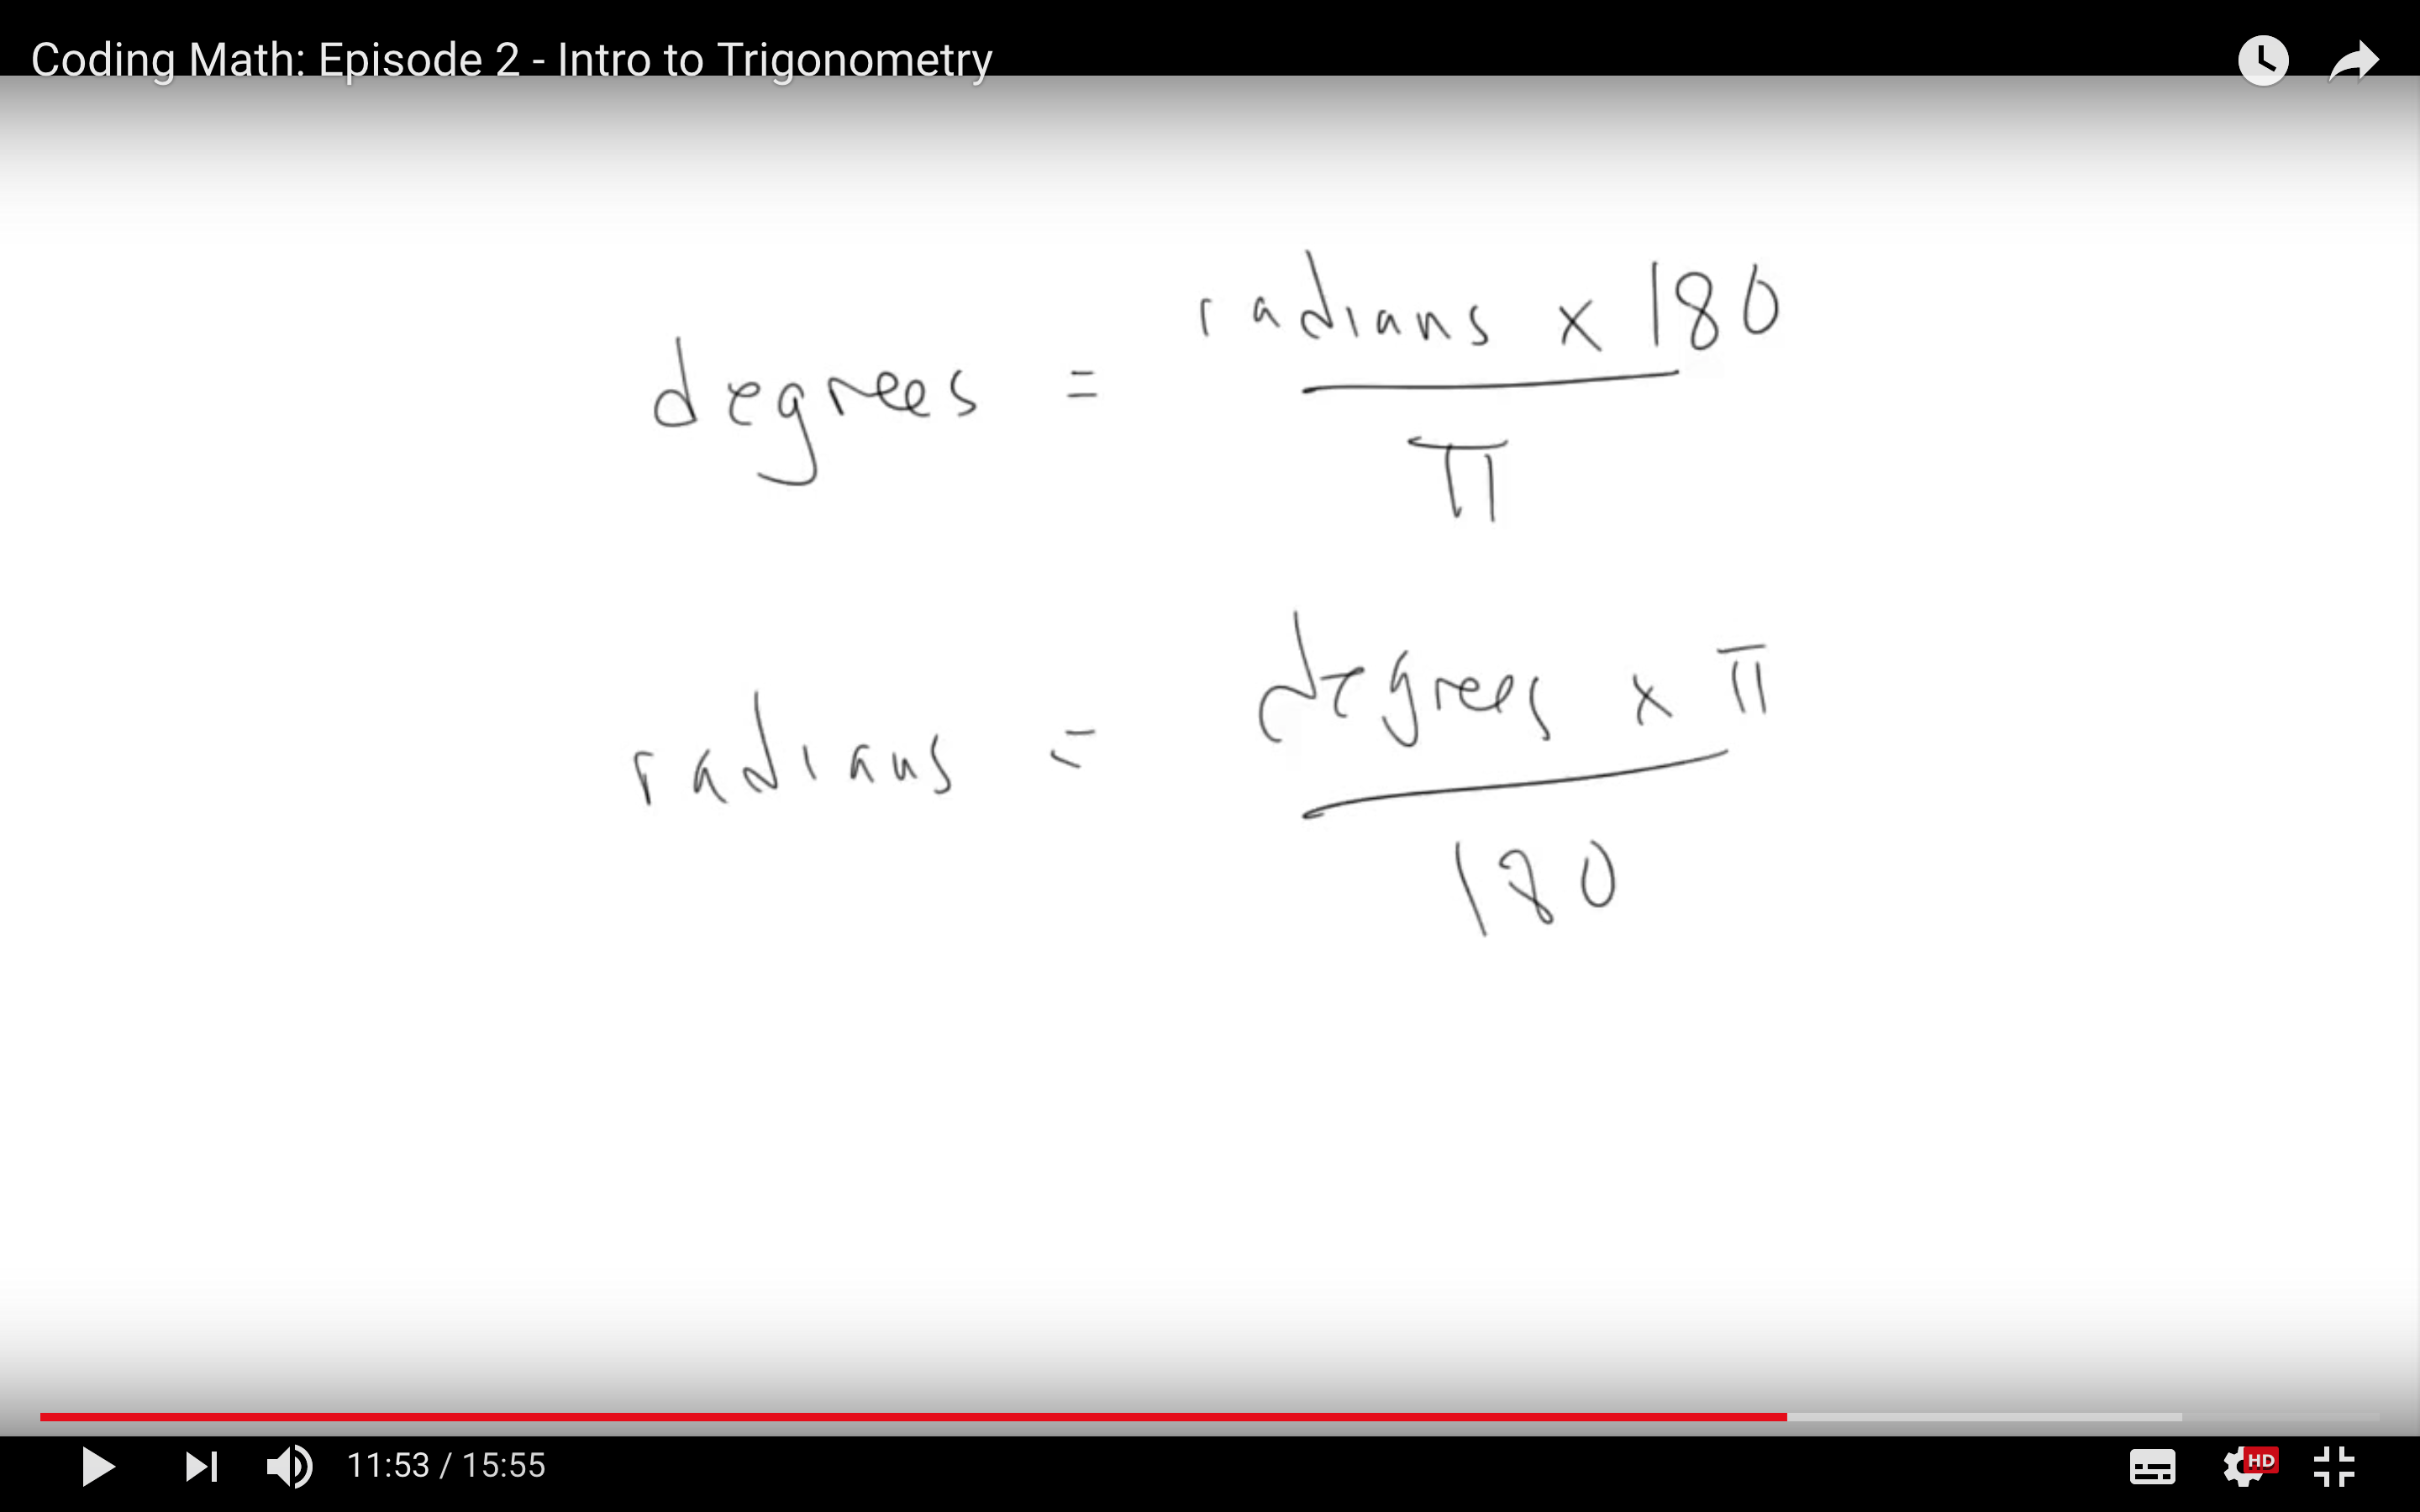 Coding Math: Episode 2 - Intro to Trigonometry
degrees = radians x 180
π
radians = degrees x π
180
11:53 / 15:55
HD